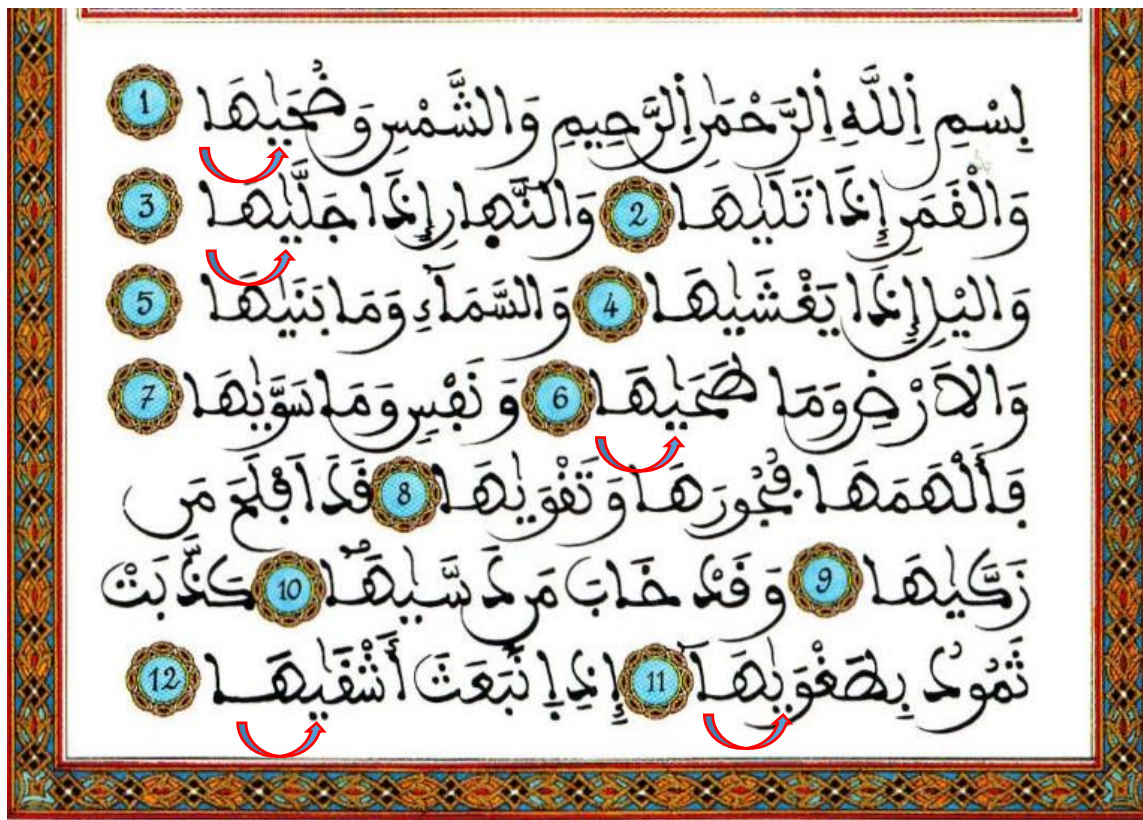 بِسْمِ اِللَّهِ اِلرَّحْمَٰنِ اِلرَّحِيمِ وَالشَّمْسِ وَضُحَيٰهَا 1
وَالْقَمَرِ إِذَا تَلَيٰهَا 2 وَالنَّهارِ إِذَا جَلَّيٰهَا 3
وَاليْلِ إِذَا يَغْشَيٰهَا 4 وَالسَّمَآءِ وَمَا بَنَيٰهَا 5
وَالَارْضِ وَمَا طَحَيٰهَا 6 وَنَفْسٍ وَمَا سَوَّيٰهَا 7
فَأَلْهَمَهَا فُجُورَهَا وَتَقْوَيٰهَا 8 قَدَ اَفْلَحَ مَن
زَكَّيٰهَا 9 وَقَدْ خَابَ مَن دَسَّيٰهَا 10 كَذَّبَتْ
ثَمُودُ بِطَغْوَيٰهَآ 11 إِذِ اِنۢبَعَثَ أَشْقَيٰهَا 12